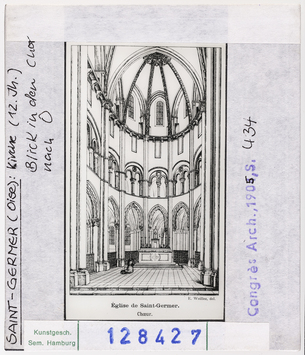 SAINT-GERMER (Oise): Kirche (12. Jh.)
Blick in den Chor
nach O
E. Vrolles, del.
Église de Saint-Germer.
Chœur.
Congrès Arch., 1905, S. 434
Kunstgesch.
Sem. Hamburg
128427